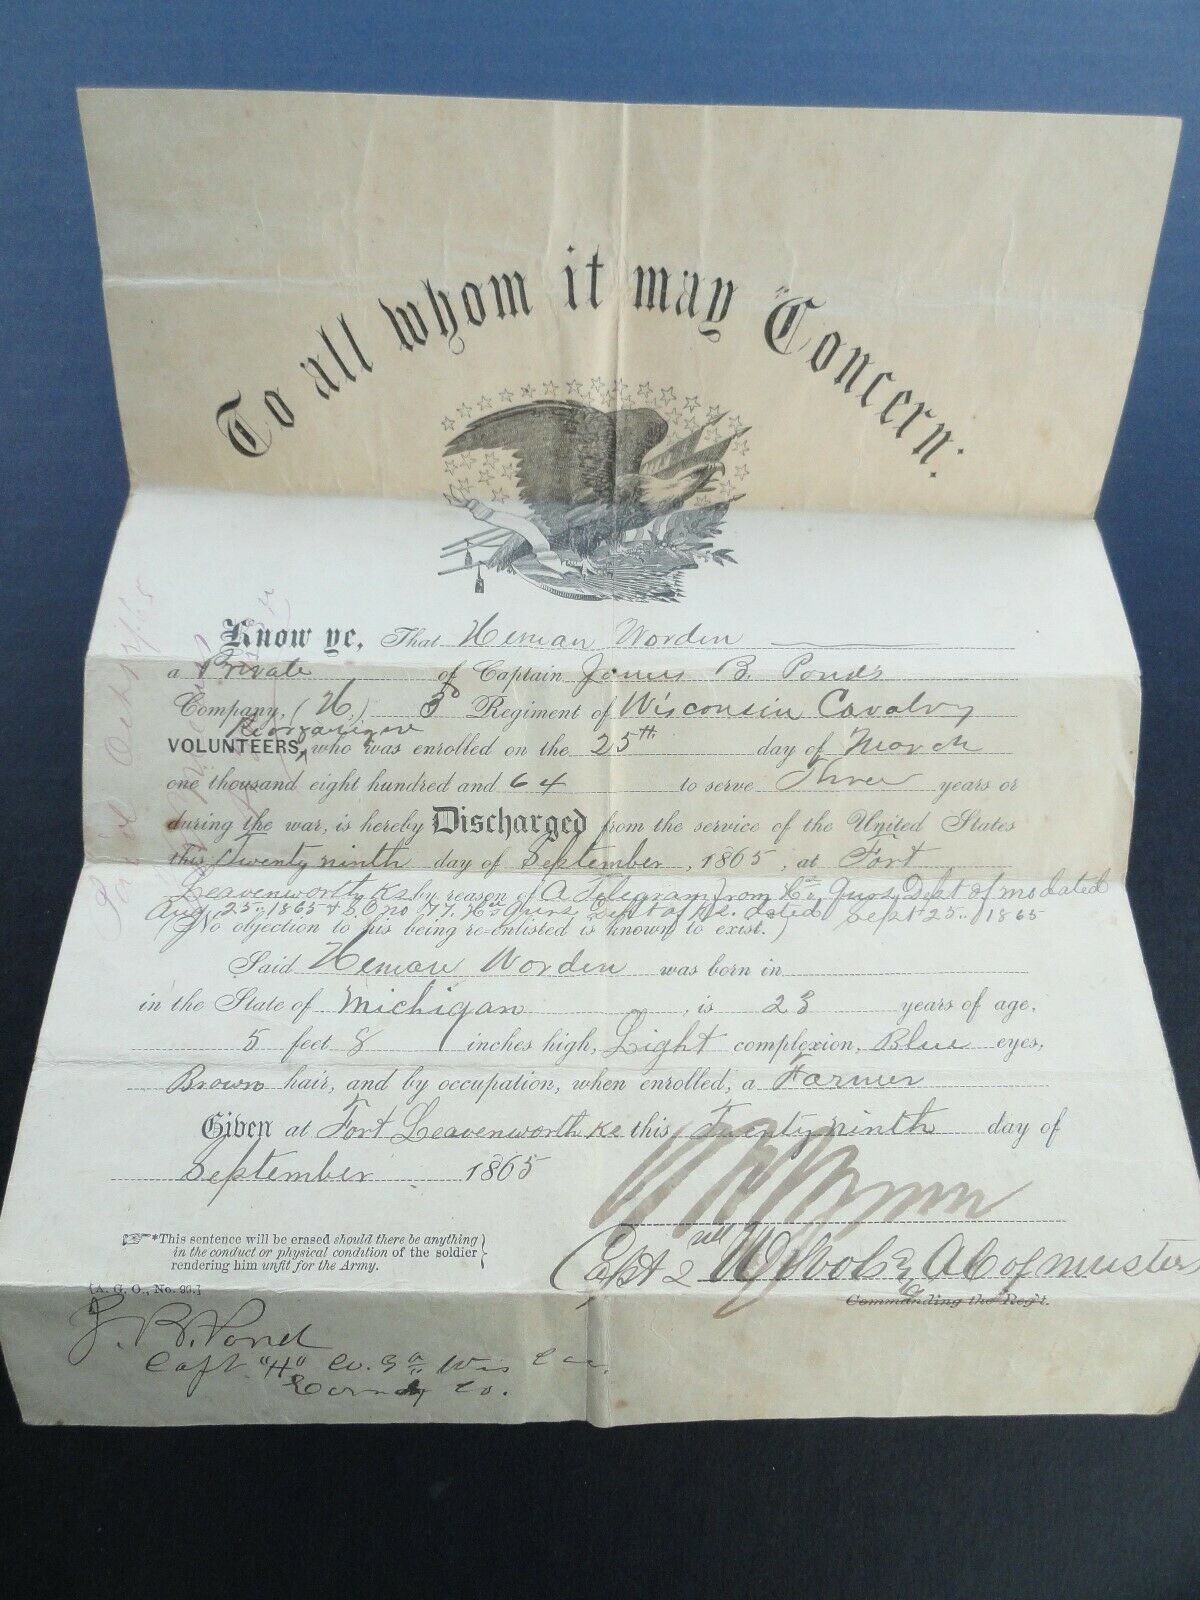 To all whom it may Concern:
Know ye, That Heman Worden
a Private of Captain James B. Pond's
Company, (H.) 3d Regiment of Wisconsin Cavalry
Reorganized
VOLUNTEERS, who was enrolled on the 25th day of March
one thousand eight hundred and 64 to serve Three years or
during the war, is hereby Discharged from the service of the United States
this Twenty ninth day of September, 1865, at Fort
Leavenworth Ks by reason of A Telegram from Hd Qurs Dept of Mo dated
Aug 25, 1865 & S.O no 77. Hd Qurs Dept of Ks. dated Sept 25. 1865
(No objection to his being re-enlisted is known to exist.)
Said Heman Worden was born in
in the State of Michigan, is 23 years of age,
5 feet 8 inches high, Light complexion, Blue eyes,
Brown hair, and by occupation, when enrolled, a Farmer
Given at Fort Leavenworth Ks this Twenty ninth day of
September 1865
*This sentence will be erased should there be anything
in the conduct or physical condition of the soldier
rendering him unfit for the Army.
[A. G. O., No. 99.]
Capt 2 A C of muster
Commanding the Reg't.
J. B. Pond
Capt. "H" Co. 3 Wis Cav.
Comdg Co.
Paid